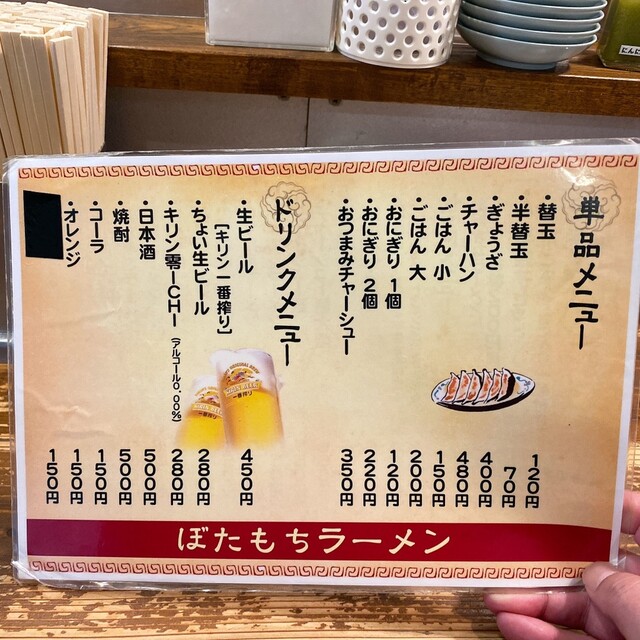 単品メニュー
・替玉 120円
・半替玉 70円
・ぎょうざ 400円
・チャーハン 480円
・ごはん 小 150円
・ごはん 大 200円
・おにぎり 1個 120円
・おにぎり 2個 220円
・おつまみチャーシュー 350円
ドリンクメニュー
・生ビール 450円
［キリン一番搾り］
・ちょい生ビール 280円
・キリン零ーCHー（アルコール0.00%） 280円
・日本酒 500円
・焼酎 500円
・コーラ 150円
・オレンジ 150円
150円
ぼたもちラーメン
一番搾り